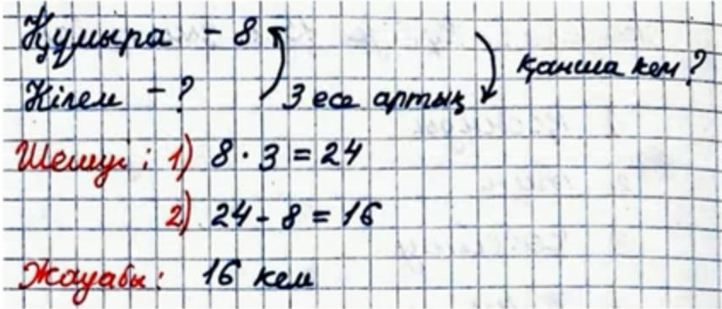 Құмыра - 8
қанша кем?
Кілем - ? 3 есе артық
Шешуі: 1) 8 · 3 = 24
2) 24 - 8 = 16
Жауабы: 16 кем